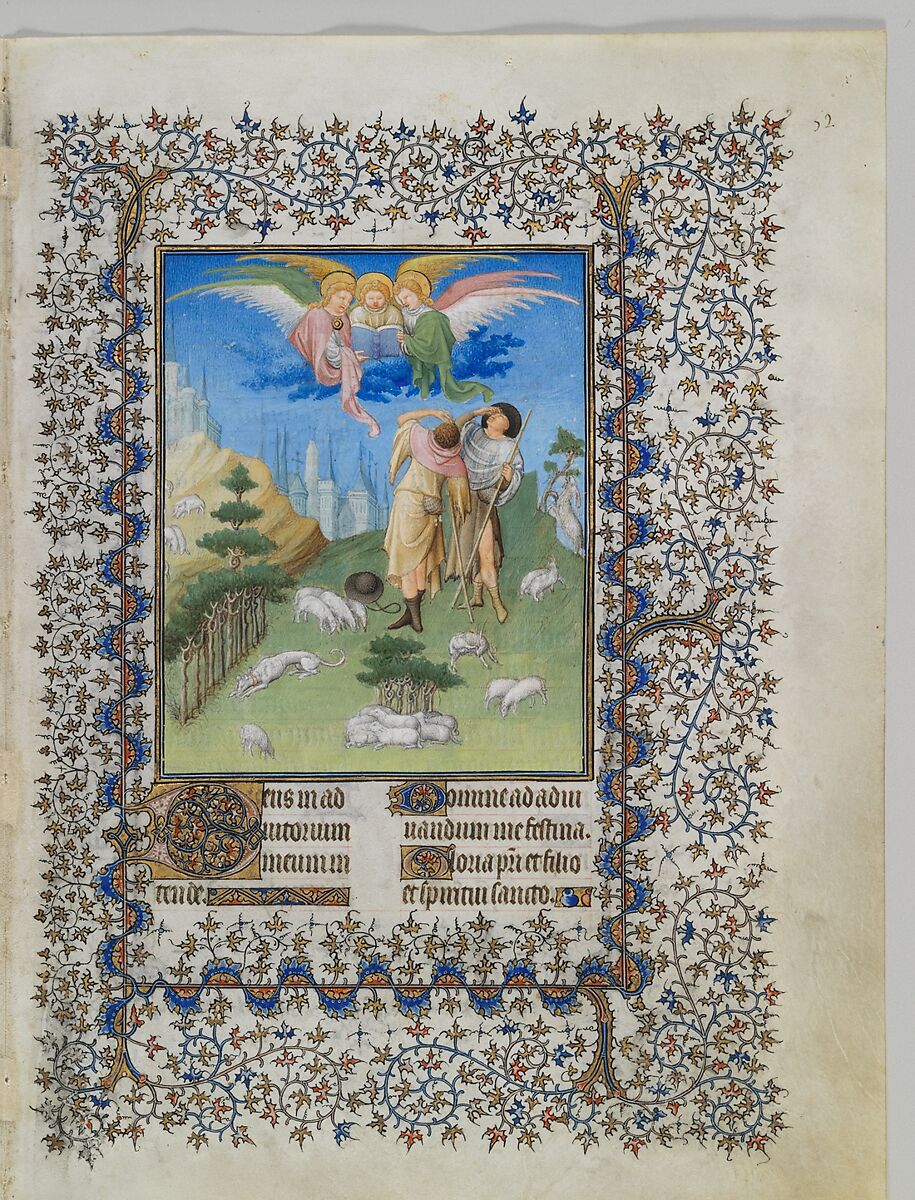 52
Deus in ad
iutorium
meum in
tende.
Domine ad adiu
uandum me festina.
Gloria pri et filio
et spiritui sancto.